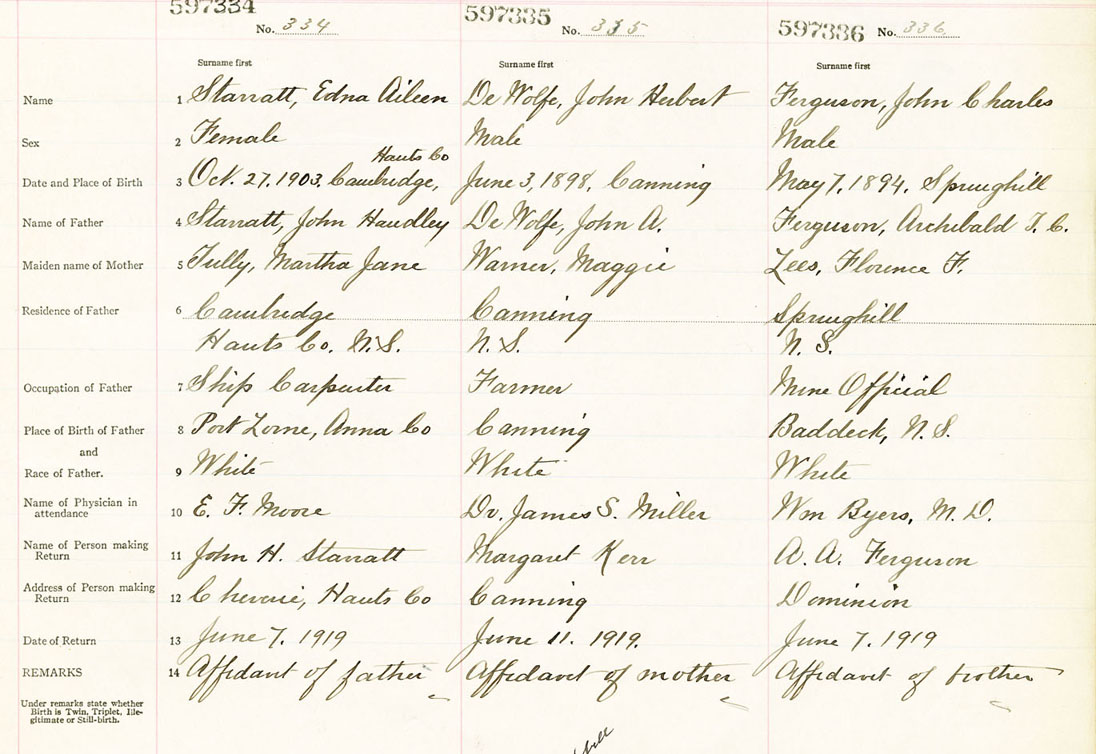 597334 No. 334 597335 No. 335 597336 No. 336
Surname first Surname first Surname first
Name 1 Starratt, Edna Aileen De Wolfe, John Herbert Ferguson, John Charles
Sex 2 Female Male Male
Hants Co
Date and Place of Birth 3 Oct. 27, 1903. Cambridge, June 3, 1898, Canning May 7, 1894, Springhill
Name of Father 4 Starratt, John Handley De Wolfe, John A. Ferguson, Archibald T. C.
Maiden name of Mother 5 Tully, Martha Jane Warner, Maggie Lees, Florence F.
Residence of Father 6 Cambridge Canning Springhill
Hants Co. N.S. N.S. N.S.
Occupation of Father 7 Ship Carpenter Farmer Mine Official
Place of Birth of Father 8 Port Lorne, Anna Co Canning Baddeck, N.S.
and
Race of Father. 9 White White White
Name of Physician in attendance 10 E. F. Moore Dr. James S. Miller Wm Byers, M.D.
Name of Person making Return 11 John H. Starratt Margaret Kerr A. A. Ferguson
Address of Person making Return 12 Cheverie, Hants Co Canning Dominion
Date of Return 13 June 7, 1919 June 11. 1919. June 7, 1919
REMARKS 14 Affidavit of father Affidavit of mother Affidavit of brother
Under remarks state whether
Birth is Twin, Triplet, Ille-
gitimate or Still-birth.